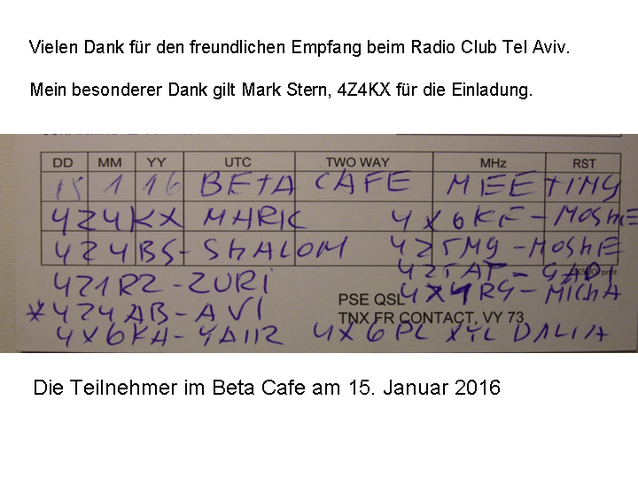 Vielen Dank für den freundlichen Empfang beim Radio Club Tel Aviv.
Mein besonderer Dank gilt Mark Stern, 4Z4KX für die Einladung.
DD MM YY UTC TWO WAY MHz RST
15 1 16 BETA CAFE MEETING
4Z4KX MARK 4X6KF-MOSHE
4Z4BS-SHALOM 4Z5MG-MOSHE
4Z1RZ-ZURI 4Z5AT-GADI
print
*4Z4AB-AVI PSE QSL 4X4RG-MICHA
TNX FR CONTACT, VY 73
4X6KA-YAIR 4X6PL XYL DALIA
Die Teilnehmer im Beta Cafe am 15. Januar 2016